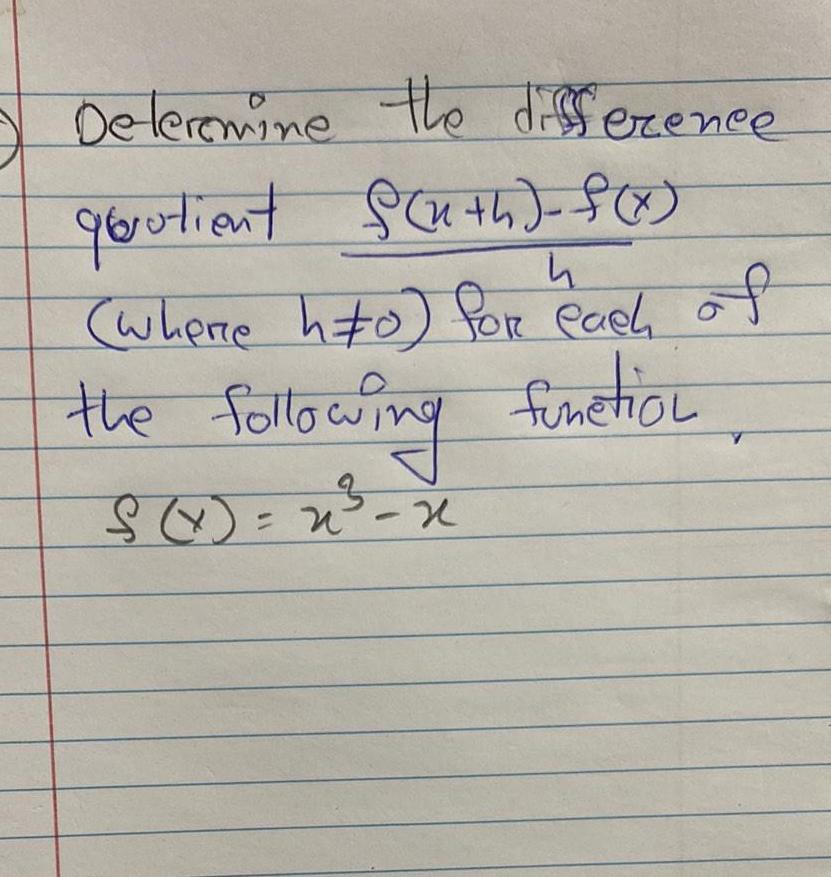 Determine the difference
quotient f(x+h)-f(x)
h
(where h≠0) for each of
the following function,
f(x) = x³ - x